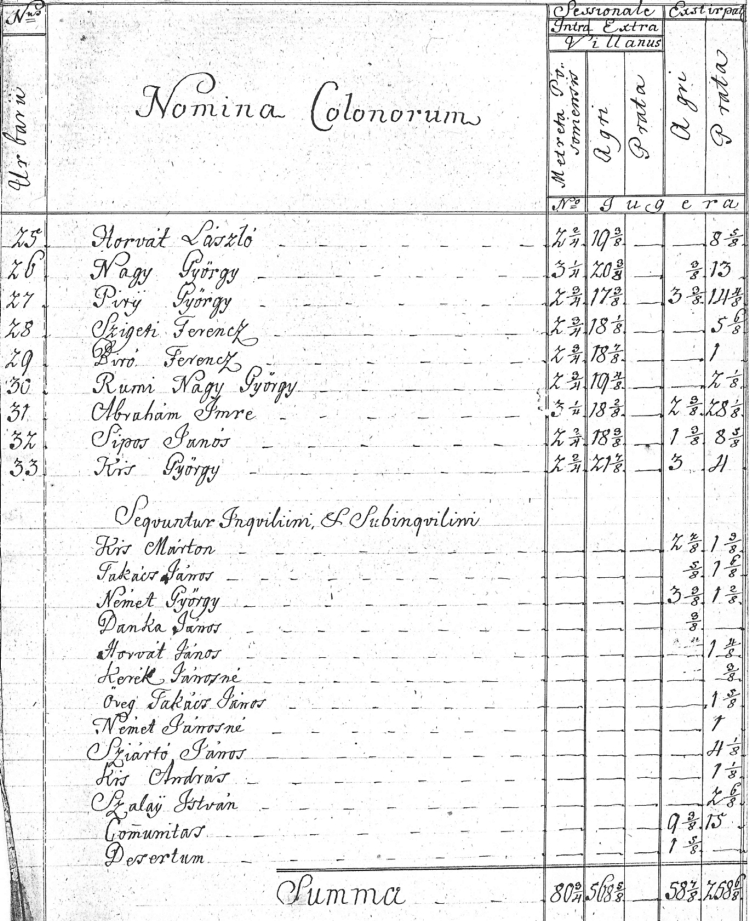 Nus Urbarii
Nomina Colonorum
Sessionale Exstirpat
Intra Extra
Villanus
Metreta Posoniensis Agri Prata Agri Prata
No Jugera
25 Horvát László 2 2/4 19 3/8 — — 8 5/8
26 Nagy György 3 1/4 20 3/8 — 3/8 13
27 Pirÿ György 2 3/4 17 3/8 — 3 3/8 14 4/8
28 Szigeti Ferencz 2 3/4 18 1/8 — — 5 6/8
29 Biró Ferencz 2 3/4 18 7/8 — — 1
30 Rumi Nagy György 2 3/4 19 4/8 — — 2 1/8
31 Abrahám Imre 3 1/4 18 2/8 — 2 3/8 28 1/8
32 Sipos János 2 2/4 18 3/8 — 1 3/8 8 5/8
33 Kis György 2 2/4 21 7/8 — 3 4
Seqvuntur Inqvilini, & Subinqvilini
Kis Márton — — — 2 7/8 1 3/8
Takács János — — — 5/8 1 6/8
Német György — — — 3 3/8 1 2/8
Danka János — — — 3/8 —
Horvát János — — — " 1 4/8
Kerék Jánosné — — — — 3/8
Öveg Takács János — — — — 1 5/8
Német Jánosné — — — — 1
Sziártó János — — — — 4 1/8
Kis András — — — — 1 1/8
Szalaÿ István — — — — 2 6/8
Com̅unitas — — — 9 3/8 15
Desertum — — — 1 5/8
Summa 80 3/4 568 5/8 — 58 7/8 258 6/8